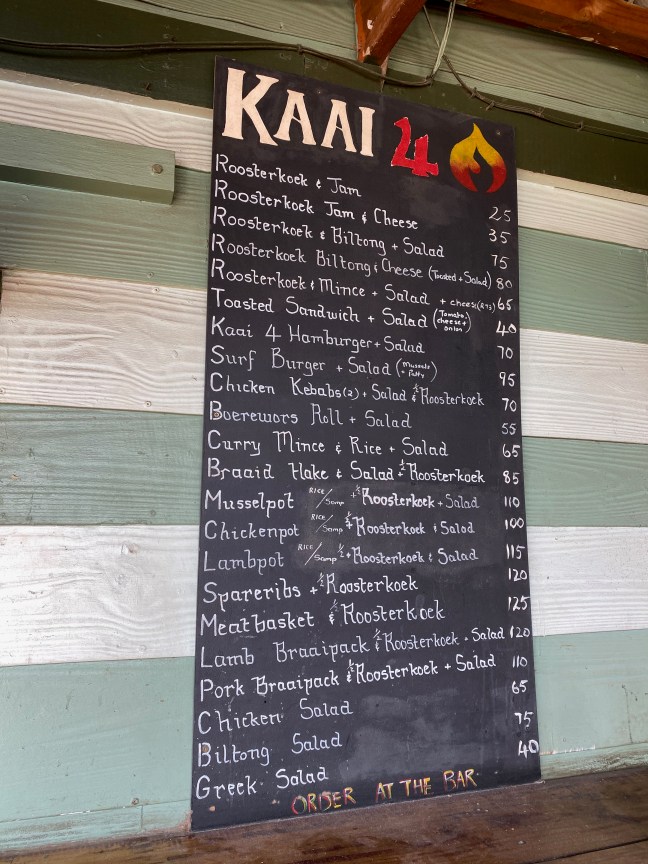 KAAI 4
Roosterkoek & Jam 25
Roosterkoek Jam & Cheese 35
Roosterkoek & Biltong + Salad 75
Roosterkoek Biltong & Cheese (Toasted + Salad) 80
Roosterkoek & Mince + Salad + cheese(R15) 65
Toasted Sandwich + Salad (Tomato, cheese + onion) 40
Kaai 4 Hamburger + Salad 70
Surf Burger + Salad (Mussels + Patty) 95
Chicken Kebabs(2) + Salad & ½ Roosterkoek 70
Boerewors Roll + Salad 55
Curry Mince & Rice + Salad 65
Braaid Hake & Salad + ½ Roosterkoek 85
Musselpot RICE/Samp + ½ Roosterkoek + Salad 110
Chickenpot RICE/Samp + ½ Roosterkoek & Salad 100
Lambpot RICE/Samp ½ + Roosterkoek & Salad 115
Spareribs + ½ Roosterkoek 120
Meatbasket & ½ Roosterkoek 125
Lamb Braaipack & ½ Roosterkoek + Salad 120
Pork Braaipack & ½ Roosterkoek + Salad 110
Chicken Salad 65
Biltong Salad 75
Greek Salad 40
ORDER AT THE BAR